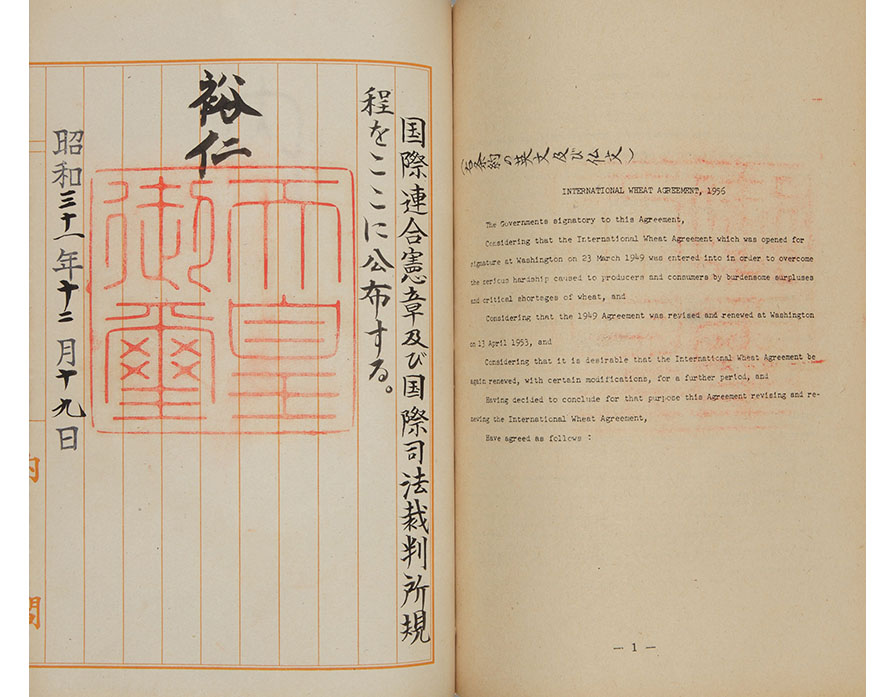 国際連合憲章及び国際司法裁判所規
程をここに公布する。
裕仁
天皇
御璽
昭和三十一年十二月十九日
(右条約の英文及び仏文)
INTERNATIONAL WHEAT AGREEMENT, 1956
The Governments signatory to this Agreement,
Considering that the International Wheat Agreement which was opened for
signature at Washington on 23 March 1949 was entered into in order to overcome
the serious hardship caused to producers and consumers by burdensome surpluses
and critical shortages of wheat, and
Considering that the 1949 Agreement was revised and renewed at Washington
on 13 April 1953, and
Considering that it is desirable that the International Wheat Agreement be
again renewed, with certain modifications, for a further period, and
Having decided to conclude for that purpose this Agreement revising and re-
newing the International Wheat Agreement,
Have agreed as follows :
— 1 —